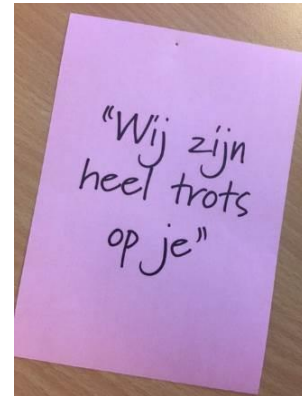 "Wij zijn
heel trots
op je"